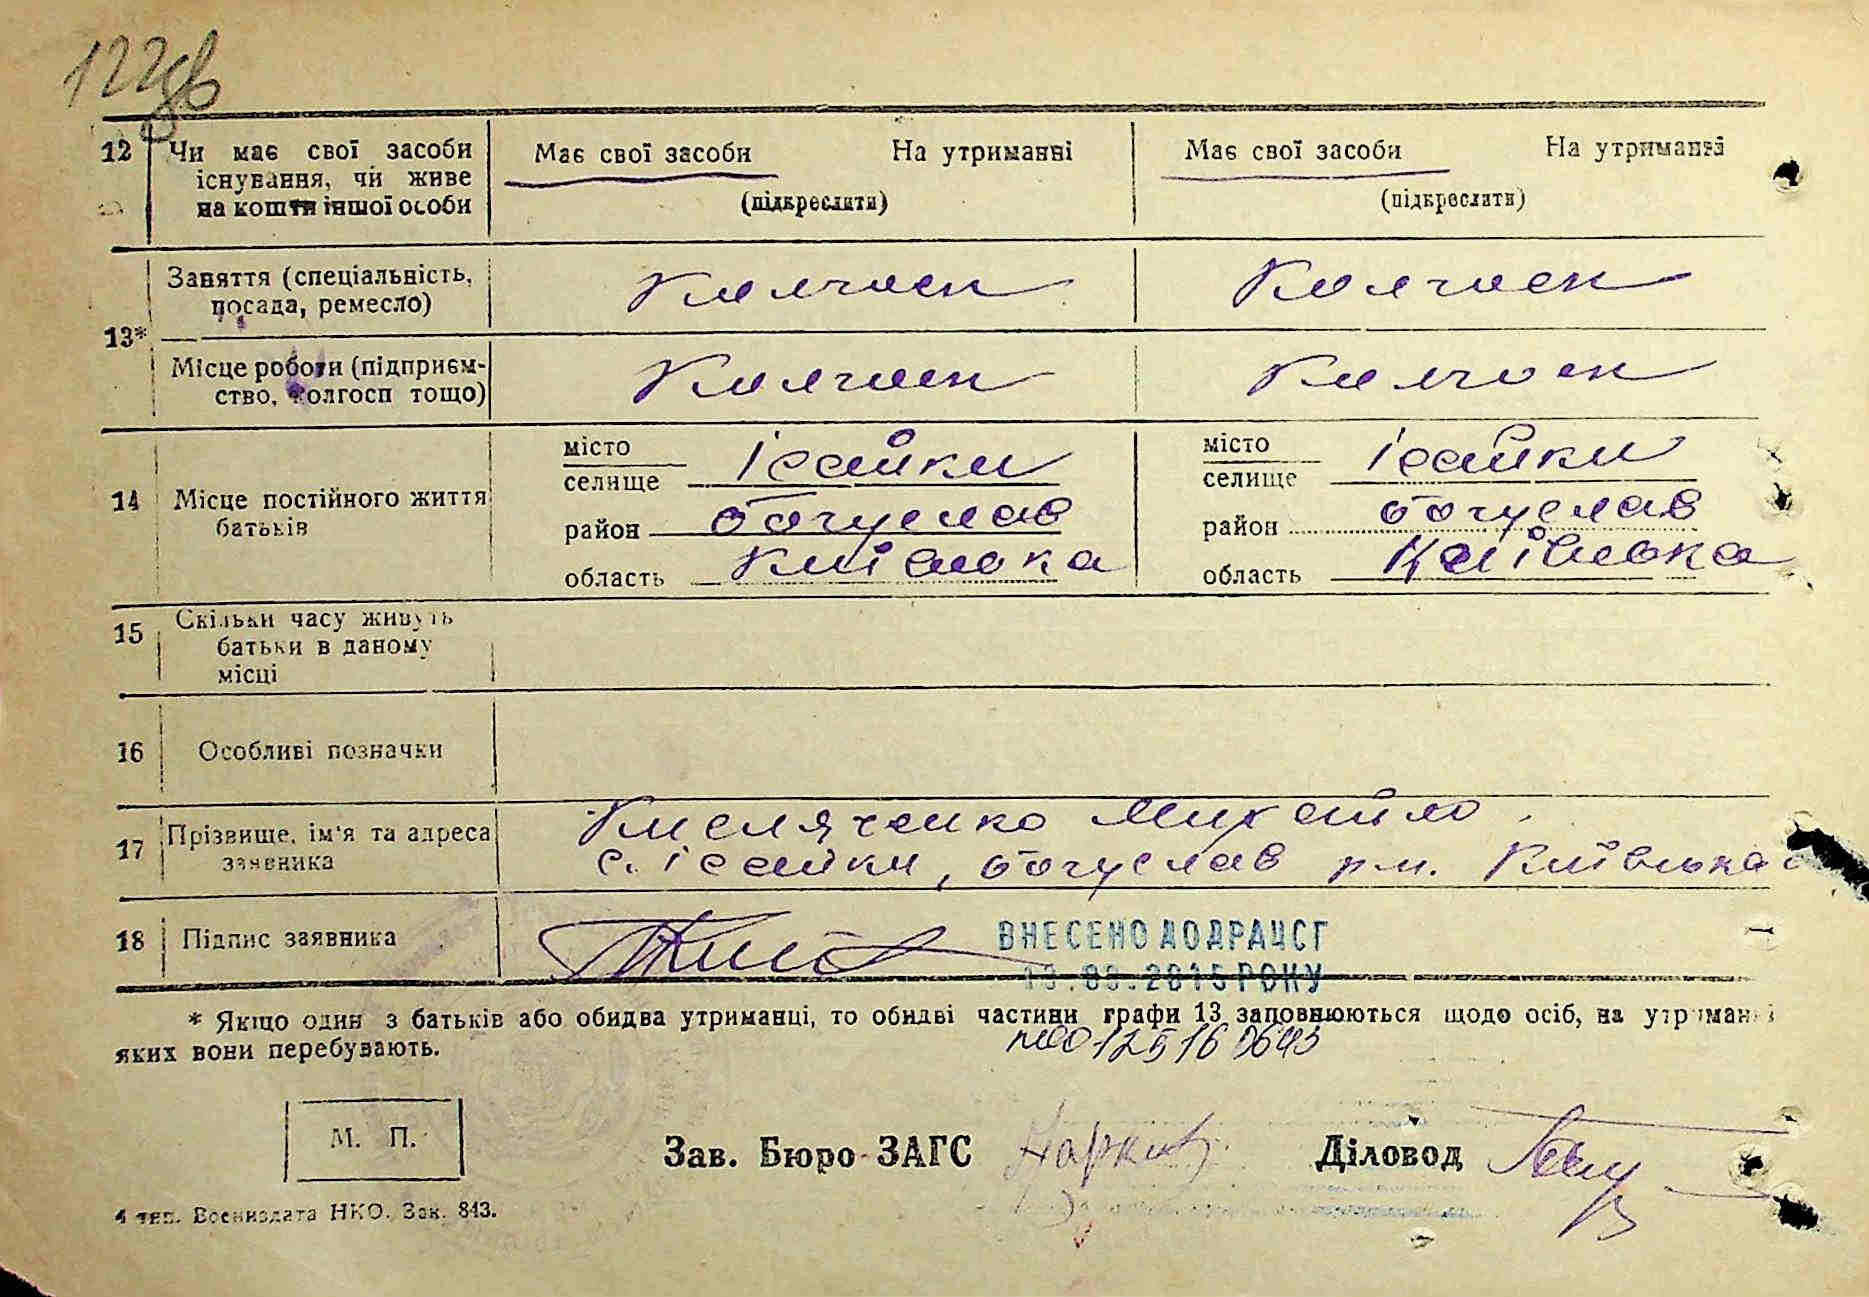 122зв
12 Чи має свої засоби існування, чи живе на кошти іншої особи
Має свої засоби На утриманні
(підкреслити)
Має свої засоби На утриманні
(підкреслити)
13*
Заняття (спеціальність, посада, ремесло)
Колгосп
Колгосп
Місце роботи (підприємство, колгосп тощо)
Колгосп
Колгосп
14 Місце постійного життя батьків
місто
селище Ісайки
район Богуслав
область Київська
місто
селище Ісайки
район Богуслав
область Київська
15 Скільки часу живуть батьки в даному місці
16 Особливі позначки
17 Прізвище, ім'я та адреса заявника
Кисляченко Михайло
с. Ісайки, Богуслав рн. Київська
18 Підпис заявника
ВНЕСЕНО ДО ДРАЦСГ
2015 РОКУ
* Якщо один з батьків або обидва утриманці, то обидві частини графи 13 заповнюються щодо осіб, на утриманні
яких вони перебувають.
М. П.
Зав. Бюро ЗАГС
Діловод
4 тип. Воениздата НКО. Зак. 843.